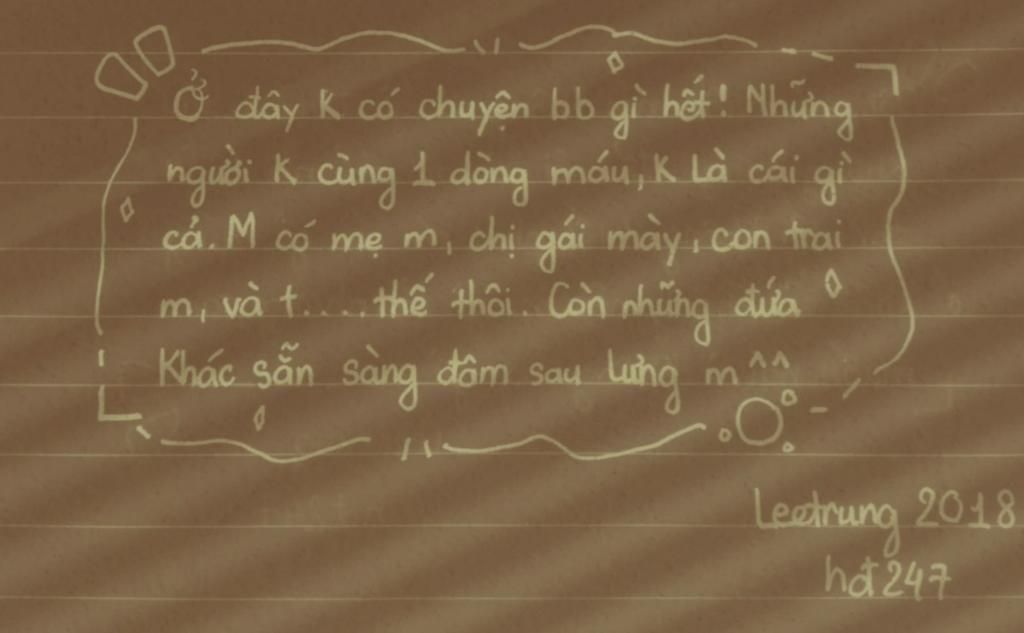 Ở đây K có chuyện bb gì hết! Những
người K cùng 1 dòng máu, K Là cái gì
cả. M có mẹ m, chị gái mày, con trai
m, và t.... thế thôi. Còn những đứa
Khác sẵn sàng đâm sau lưng m^^
Leetrung 2018
hđt247